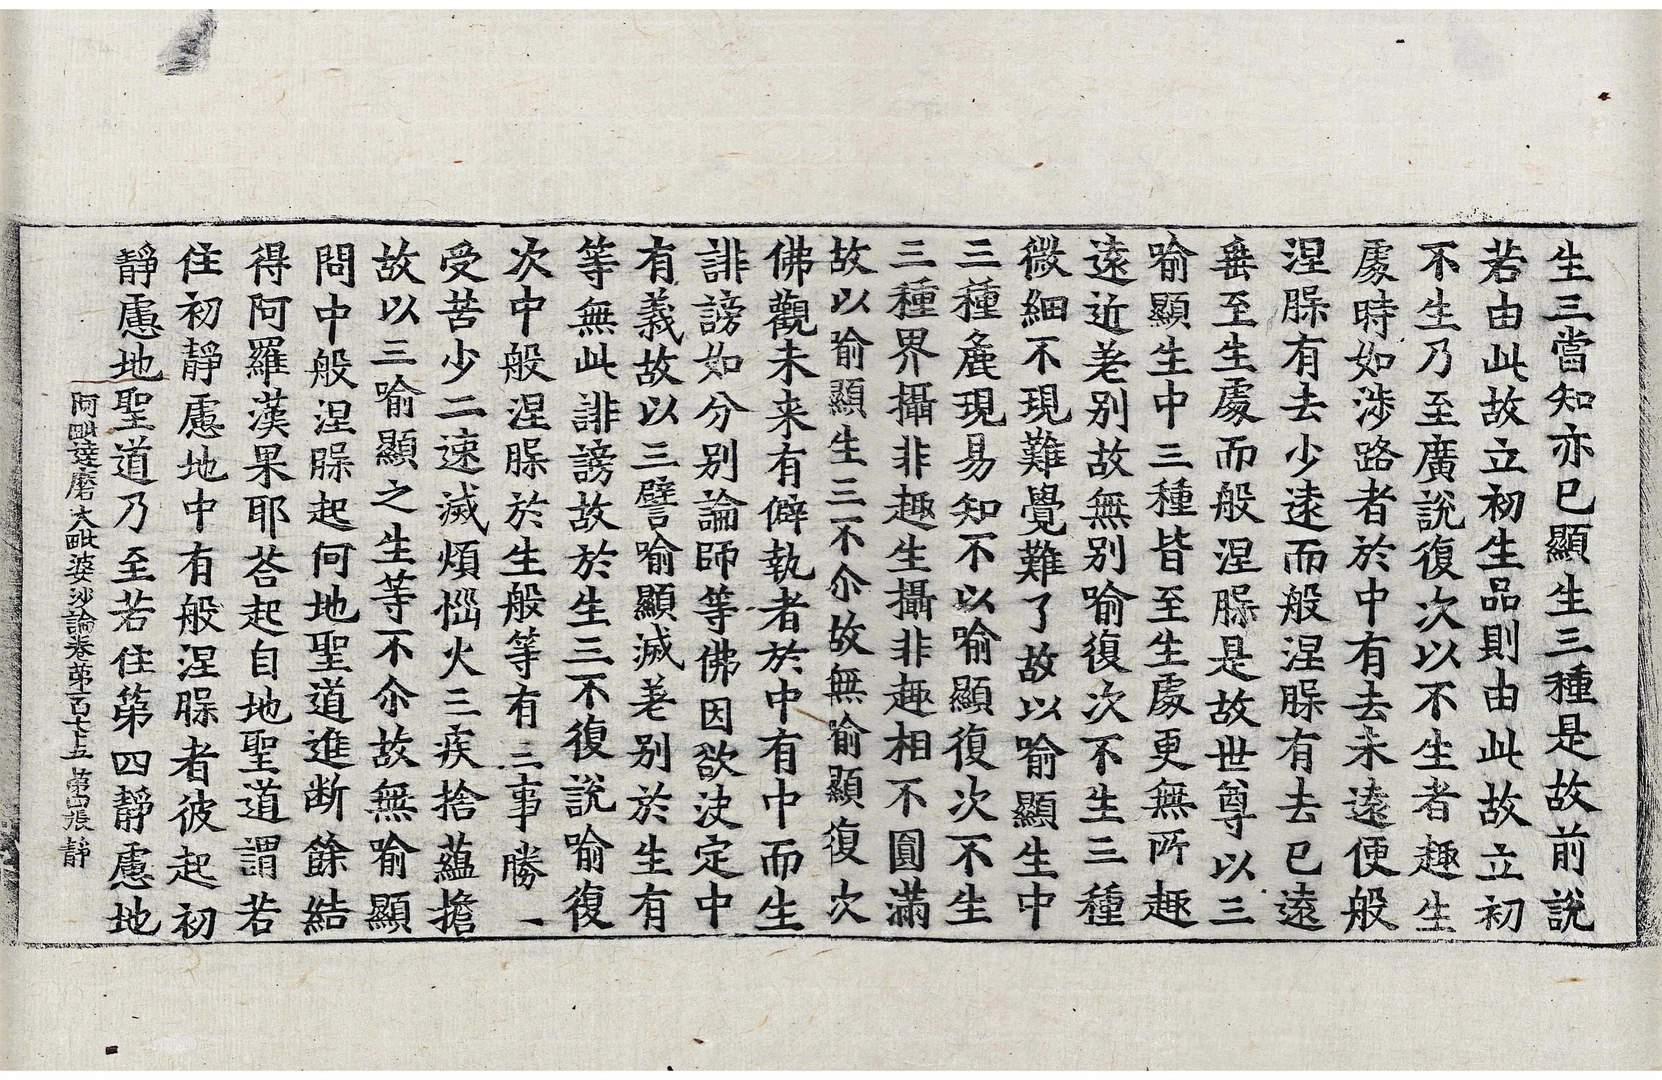 生三當知亦已顯生三種是故前說
若由此故立初生品則由此故立初
不生乃至廣說復次以不生者趣生
處時如涉路者於中有去未遠便般
涅槃有去少遠而般涅槃有去已遠
垂至生處而般涅槃是故世尊以三
喻顯生中三種皆至生處更無所趣
遠近差別故無別喻復次不生三種
微細不現難覺難了故以喻顯生中
三種麁現易知不以喻顯復次不生
三種界攝非趣生攝非趣相不圓滿
故以喻顯生三不尒故無喻顯復次
佛觀未来有僻執者於中有中而生
誹謗如分別論師等佛因欲決定中
有義故以三譬喻顯滅差別於生有
等無此誹謗故於生三不復說喻復
次中般涅槃於生般等有三事勝一
受苦少二速滅煩惱火三疾捨蘊擔
故以三喻顯之生等不尒故無喻顯
問中般涅槃起何地聖道進断餘結
得阿羅漢果耶荅起自地聖道謂若
住初靜慮地中有般涅槃者彼起初
靜慮地聖道乃至若住第四靜慮地
阿毗達磨大毗婆沙論卷第一百七十五 第四張 靜